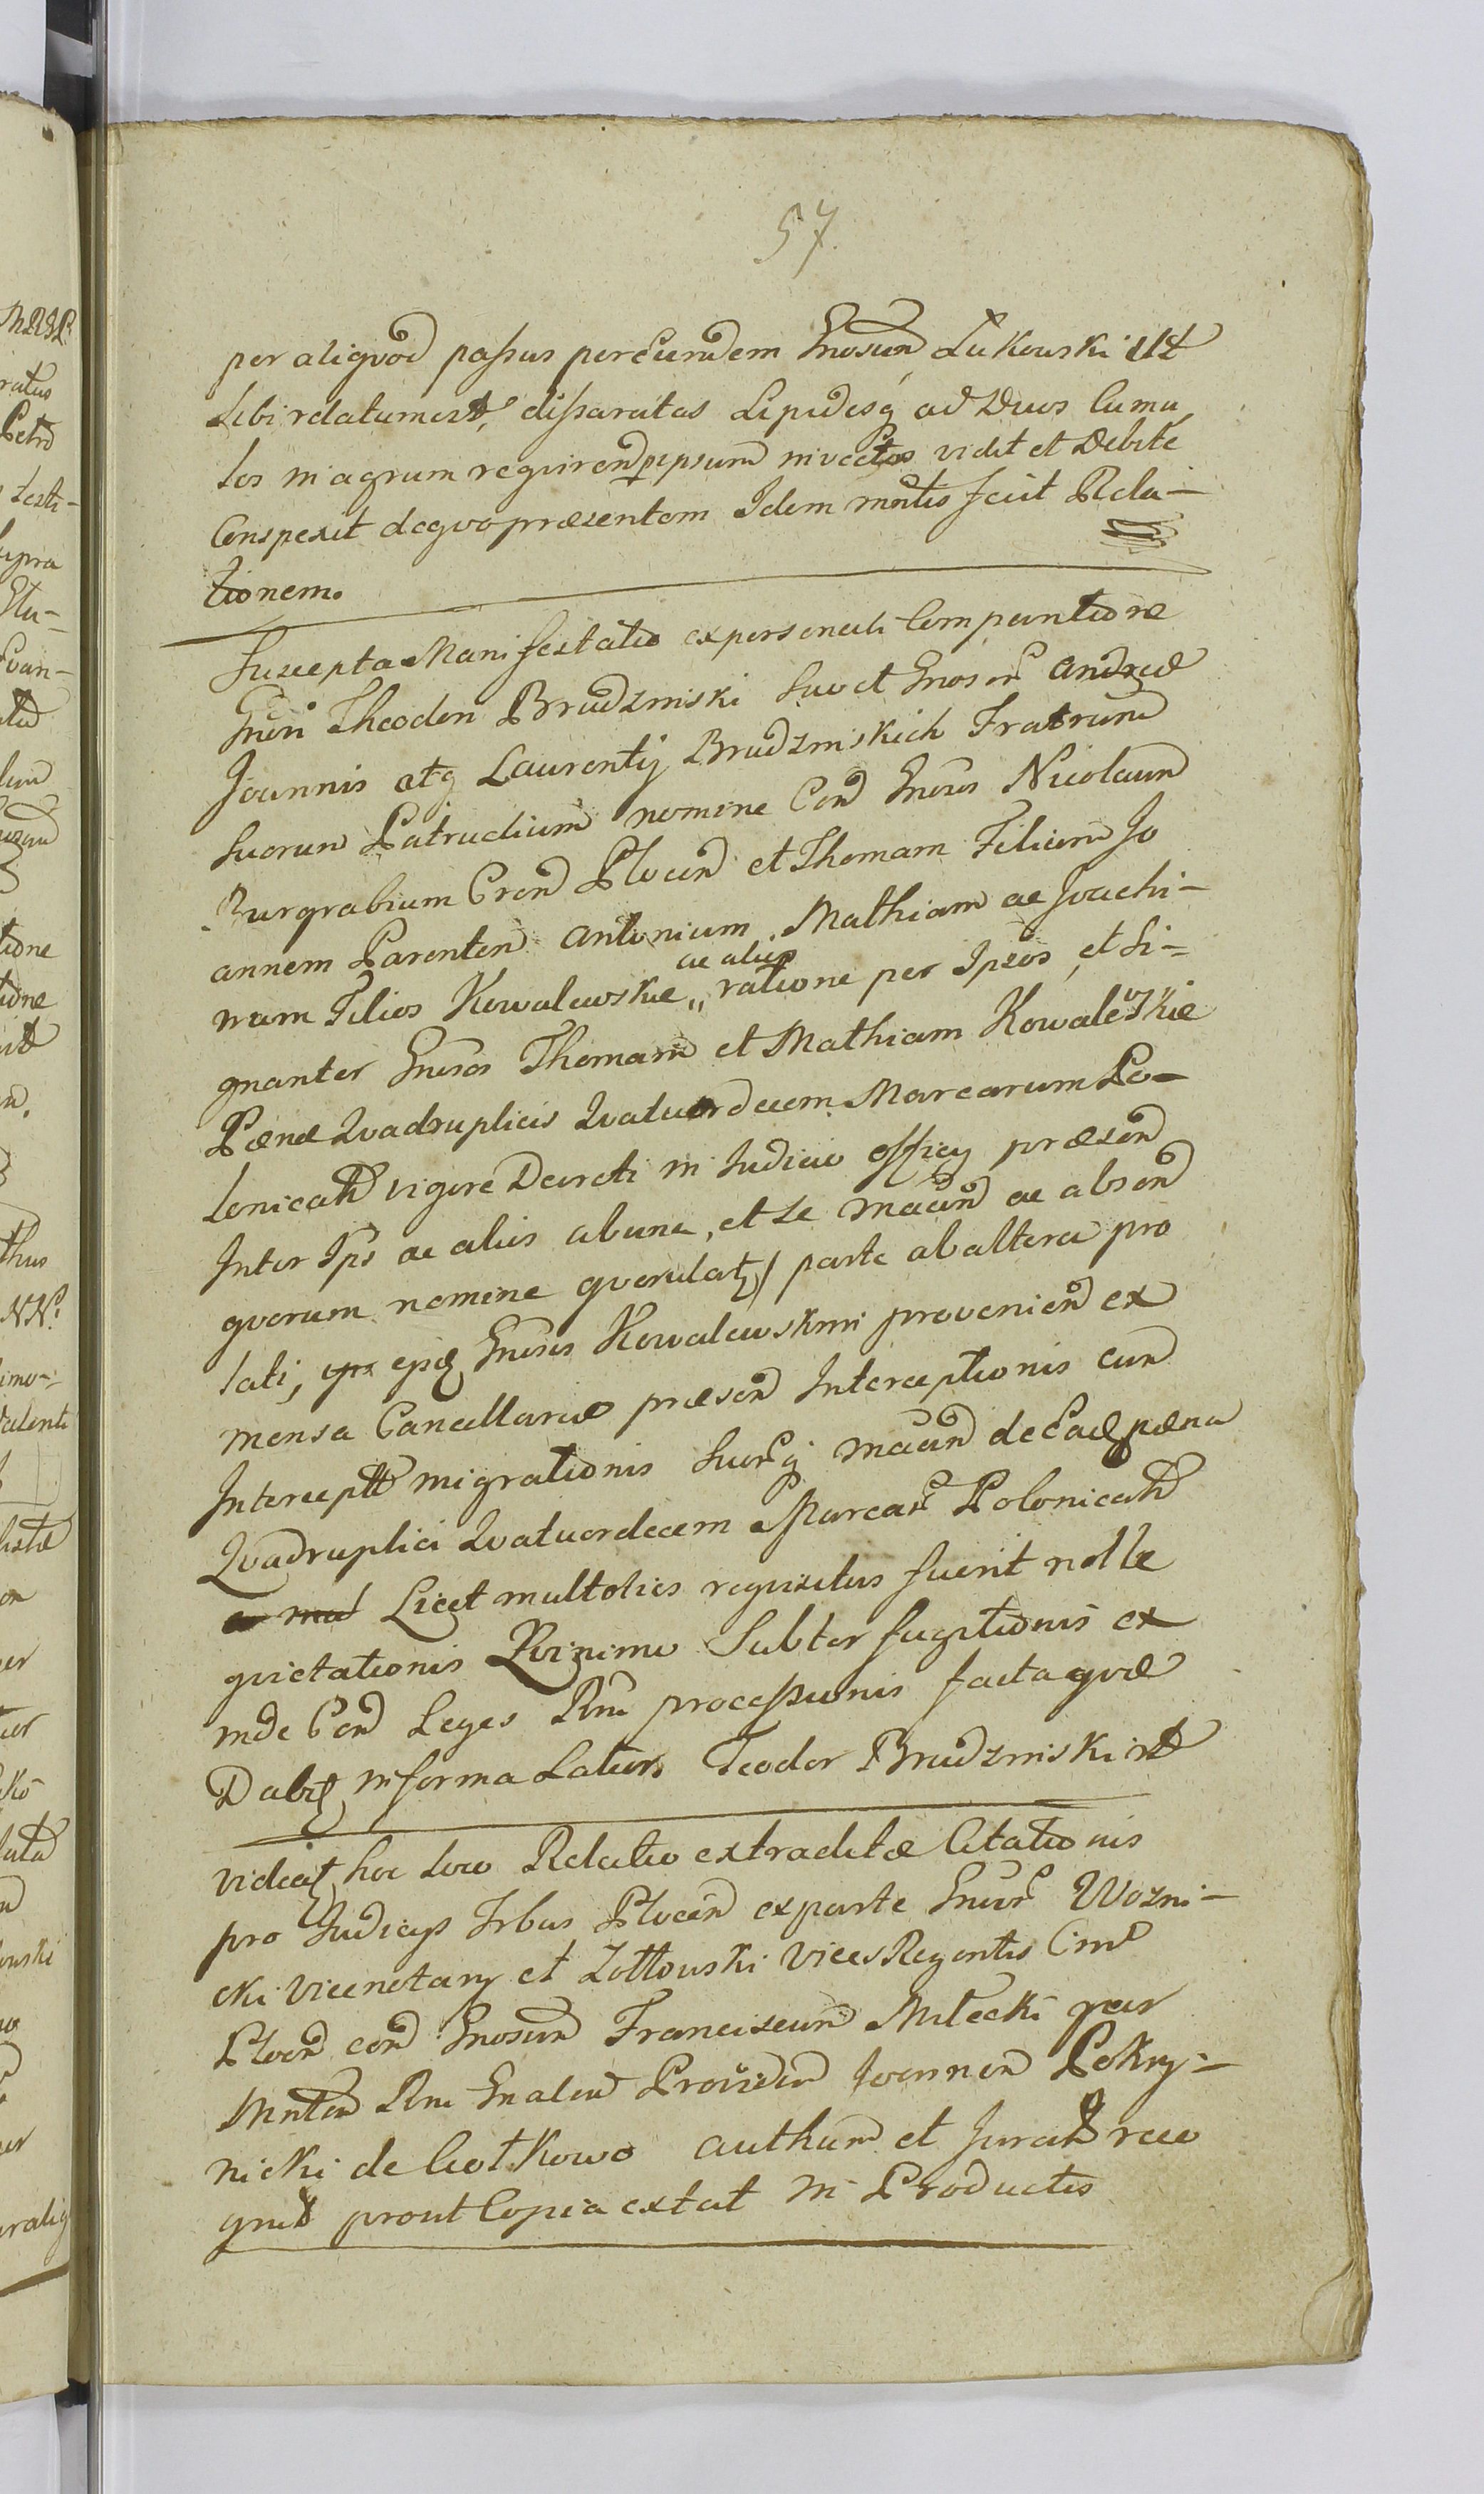 57.
per aliqvod passus per Eundem Gnosum Łukowski ut
sibi relatum est, dissaratas Lipidesq ad Duos Cumu
los in agrum reqvirend ipsum invectos vidit et Debite
Conspexit de qvo præsentem Idem mntis fecit Rela-
tionem.
Suscepta Manifestatio ex personali Comparitione
Gnosi Theodori Brudzinski suo et Gnosor Andreæ
Joannis atq Laurentij Brudzinskich Fratrum
Suorum Patruelium nomine Con Gnosos Nicolaum
Burgrabium Cren Plocen et Thomam Filium Jo
annem Parentem Antonium, Mathiam ac Joachi-
mum Filios Kowalewskie ac alios ratione per Ipsos et Si-
gnanter Gnosos Thomam et Mathiam Kowalewskie
Pænæ Qvadruplicis Qvatuordecem Marcarum Po-
lonicath vigore Decreti in Judicio officij præsen
Inter Ips ac alios ab una, et se maan ac absen
qvorum nomine qverulat parte ab altera pro
lati, ipsq Gnosis Kowalewskmi provenien ex
mensa Cancellariæ præsen Interceptionis cum
Intercept migrationis Suorq maan de Eadq pæna
Qvadruplici Qvatuordecem Marcar Polonicath
Licet multoties reqvisitus fuerit nolle
qvietationis Qvinimo Subterfugitionis ex
inde Con Leges Rni processionis facta qvæ
Dabit in forma Latiori Teodor Brudzinski
videat hoc loco Relatio extraditæ Citationis
pro Judicijs Trbus Plocen ex parte Gnor Wozni-
cki Vicenotarij et Zottowski Vices Regentis
Plocen con Gnosum Franciscum Milecki per
Mntem Rni Gnalem Providum Joannem Pokrzy-
nicki de Ciotkowo authum et Jurath reco
gnit prout Copia extat in Productis